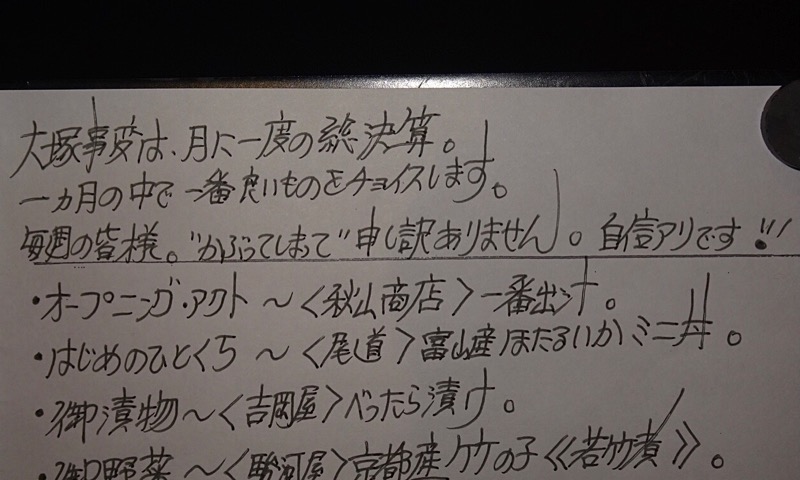 大塚事変は、月に一度の総決算。
一ヵ月の中で一番良いものをチョイスします。
毎週の皆様。"かぶってしまって"申し訳ありません。自信アリです!!!
・オープニング・アクト～〈秋山商店〉一番出汁。
・はじめのひとくち～〈尾道〉富山産ほたるいかミニ丼。
・御漬物～〈吉岡屋〉べったら漬け。
・御野菜～〈駿河屋〉京都産竹の子《若竹煮》。